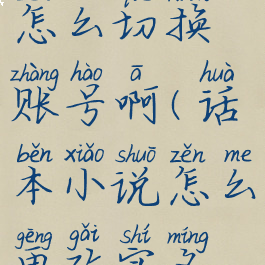 怎么切换
zhàng hào ā huà
账号啊(话
běn xiǎo shuō zěn me
本小说怎么
gēng gǎi shí míng
更改实名